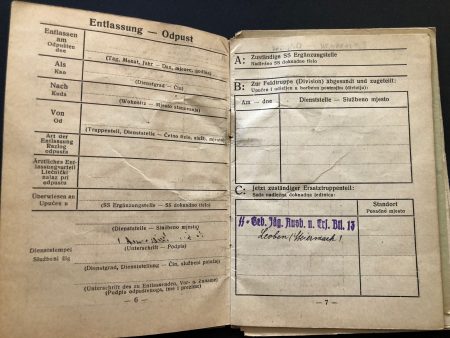 Entlassung — Odpust
Entlassen
am
Odpušten
dne
(Tag, Monat, Jahr — Dan, mjesec, godina)
Als
Kao
(Dienstgrad — Čin)
Nach
Kuda
(Wohnsitz — Mjesto stanovanja)
Von
Od
(Truppenteil, Dienststelle — Četno tielo, služb. mjesto)
Art der
Entlassung
Razlog
odpusta
Ärztliches Ent-
lassungsurteil
Liečnički
nalaz pri
odpustu
Überwiesen an
Upućen u
(SS Ergänzungstelle — SS doknadno tielo)
(Dienststelle — Službeno mjesto)
Dienststempel
Službeni žig
(Unterschrift — Podpis)
(Dienstgrad, Dienststellung — Čin, službeni položaj)
(Unterschrift des zu Entlassenden, Vor- u. Zuname)
(Podpis odpuštenoga, ime i prezime)
— 6 —
A: Zuständige SS Ergänzungstelle
Nadležno SS doknadno tielo
B: Zur Feldtruppe (Division) abgesandt und zugeteilt:
Upućen i odieljen u borbenu postrojbu (diviziju):
Am — dne
Dienststelle — Službeno mjesto
C: jetzt zuständiger Ersatztruppenteil:
Sada nadležna doknadna jedinica:
Standort
Posadno mjesto
SS-Geb. Jäg. Ausb. u. Ers. Btl. 13
Leoben/Steiermark!
— 7 —